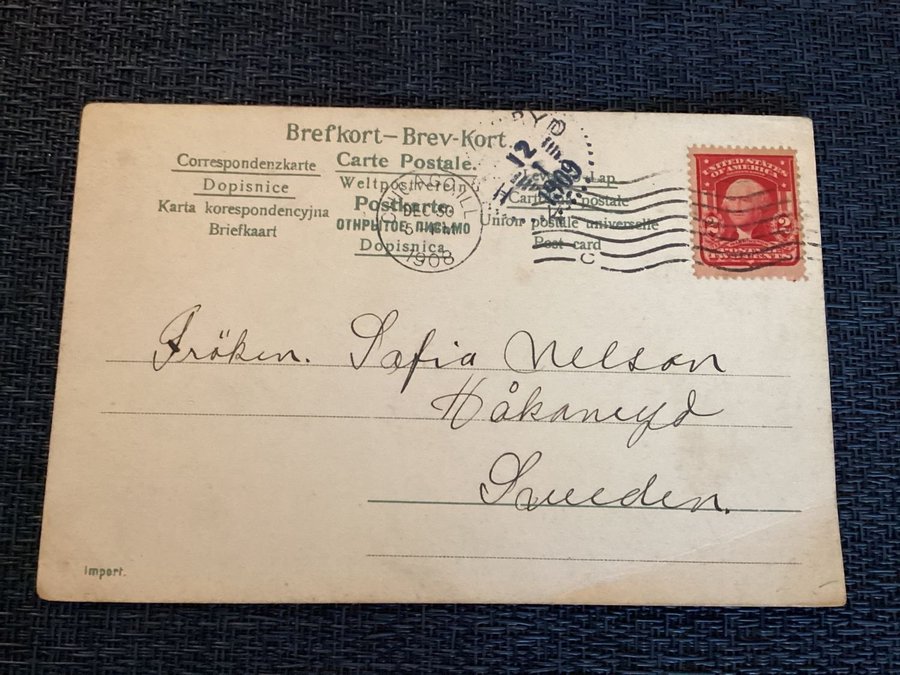 Brefkort—Brev-Kort
Correspondenzkarte
Carte Postale.
Dopisnice
Weltpostverein
Karta korespondencyjna
Postkarte
Briefkaart
ОТКРЫТОЕ ПИСЬМО
Dopisnica
-Lap
postale
Union postale universelle
Post card
CHICAGO, ILL
DEC 30
5
1908
RYD
12
1
1909
UNITED STATES
OF AMERICA
2 2
TWO CENTS
Fröken. Sofia Nelson
Håkanryd
Sweden.
Import.